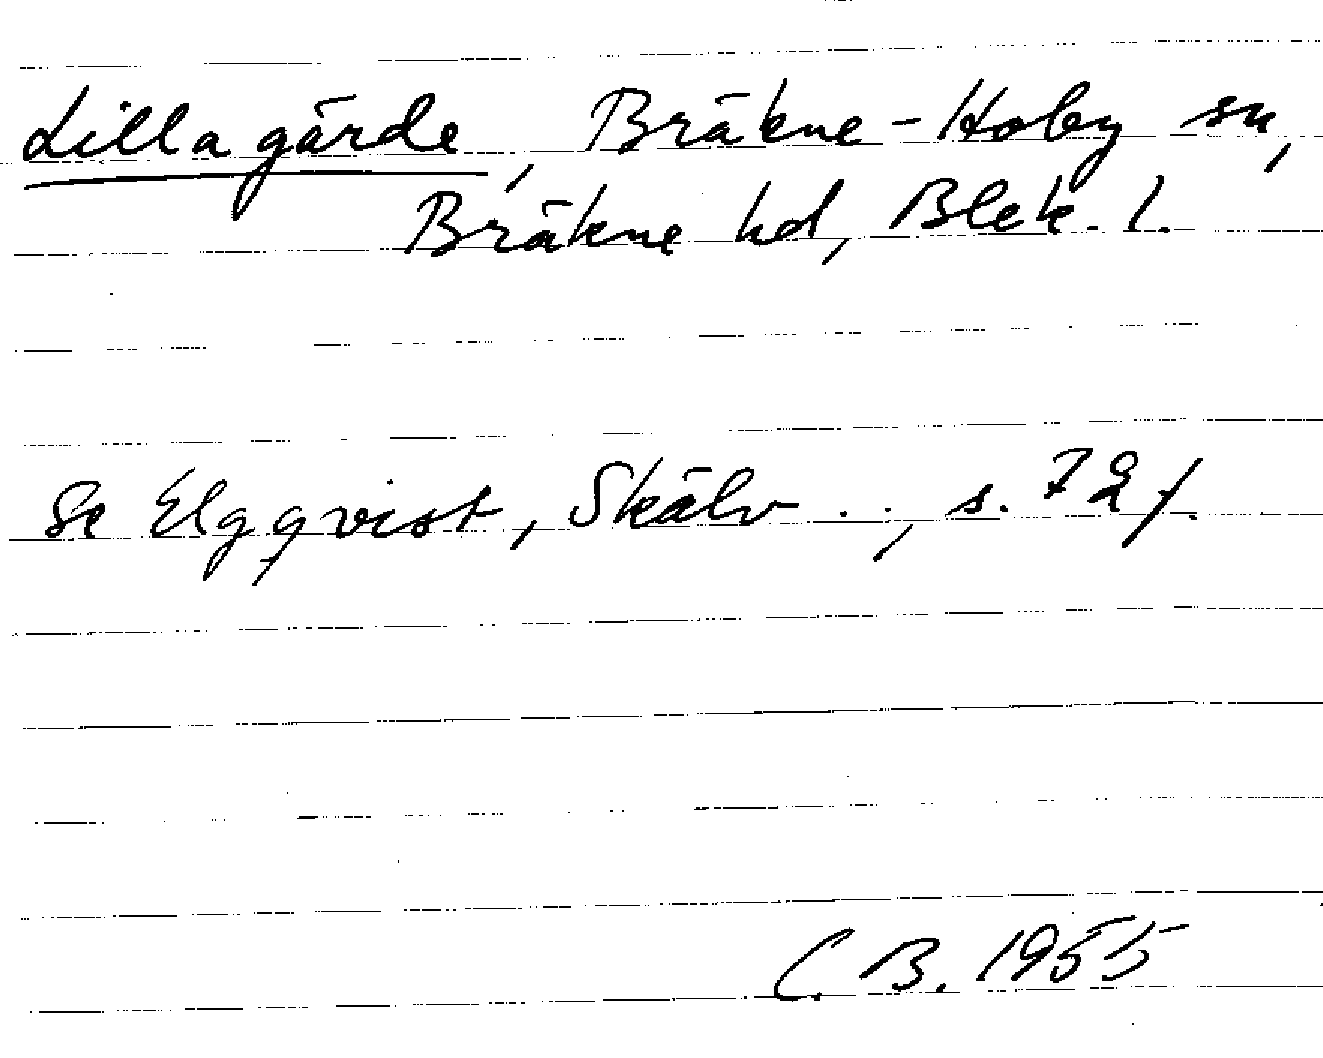 Lillagärde, Bräkne-Hoby sn,
Bräkne hd, Blek. l.
Se Elgqvist, Skälv . ., s. 72 f.
C. B. 1955